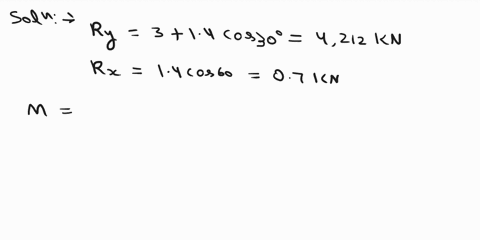 Soln:→ Ry = 3 + 1.4 cos30° = 4,212 KN
Rx = 1.4 cos60 = 0.7 KN
M =